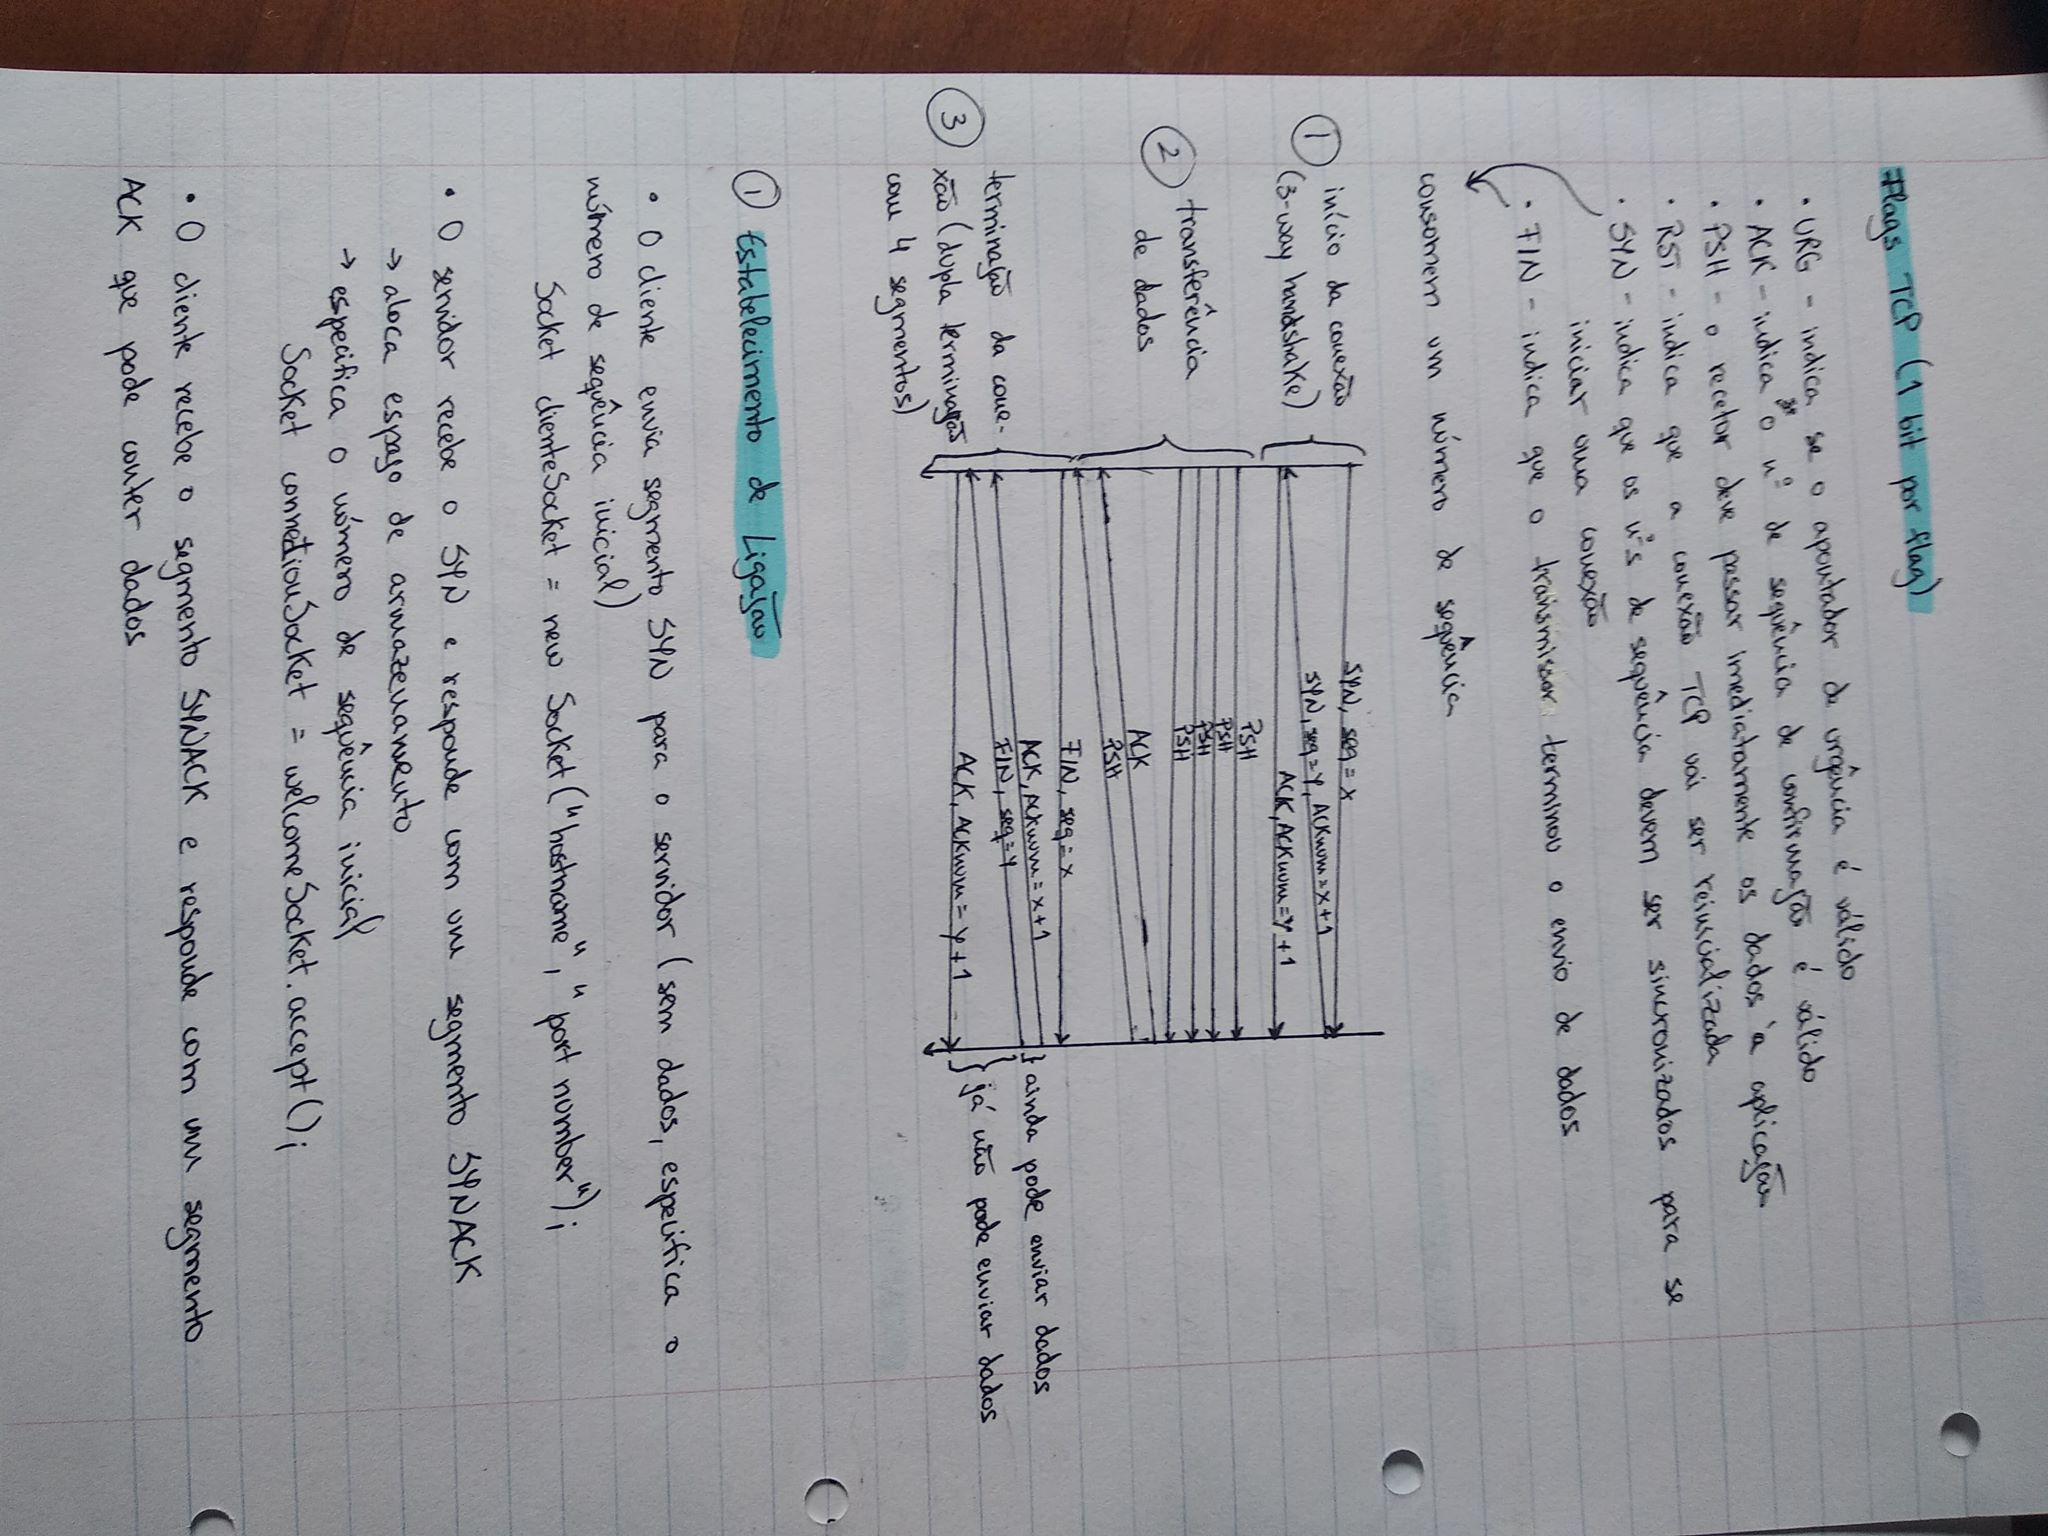 Flags TCP (1 bit por flag)
• URG - indica se o apontador de urgência é válido
• ACK - indica se o nº de sequência de confirmação é válido
• PSH - o recetor deve passar imediatamente os dados à aplicação
• RST - indica que a conexão TCP vai ser reinicializada
• SYN - indica que os nºs de sequência devem ser sincronizados para se
iniciar uma conexão
• FIN - indica que o transmissor terminou o envio de dados
consomem um número de sequência
1 início da conexão
(3-way handshake)
SYN, seq = x
SYN, seq = y, ACKnum = x+1
ACK, ACKnum = y+1
2 transferência
de dados
PSH
PSH
PSH
PSH
ACK
PSH
3 terminação da cone-
xão (dupla terminação
com 4 segmentos)
FIN, seq = x
ACK, ACKnum = x+1
FIN, seq = y
ACK, ACKnum = y+1
} ainda pode enviar dados
} já não pode enviar dados
1 Estabelecimento de Ligação
• O cliente envia segmento SYN para o servidor (sem dados, especifica o
número de sequência inicial)
Socket clienteSocket = new Socket("hostname", "port number");
• O servidor recebe o SYN e responde com um segmento SYNACK
→ aloca espaço de armazenamento
→ especifica o número de sequência inicial
Socket connectionSocket = welcomeSocket.accept();
• O cliente recebe o segmento SYNACK e responde com um segmento
ACK que pode conter dados